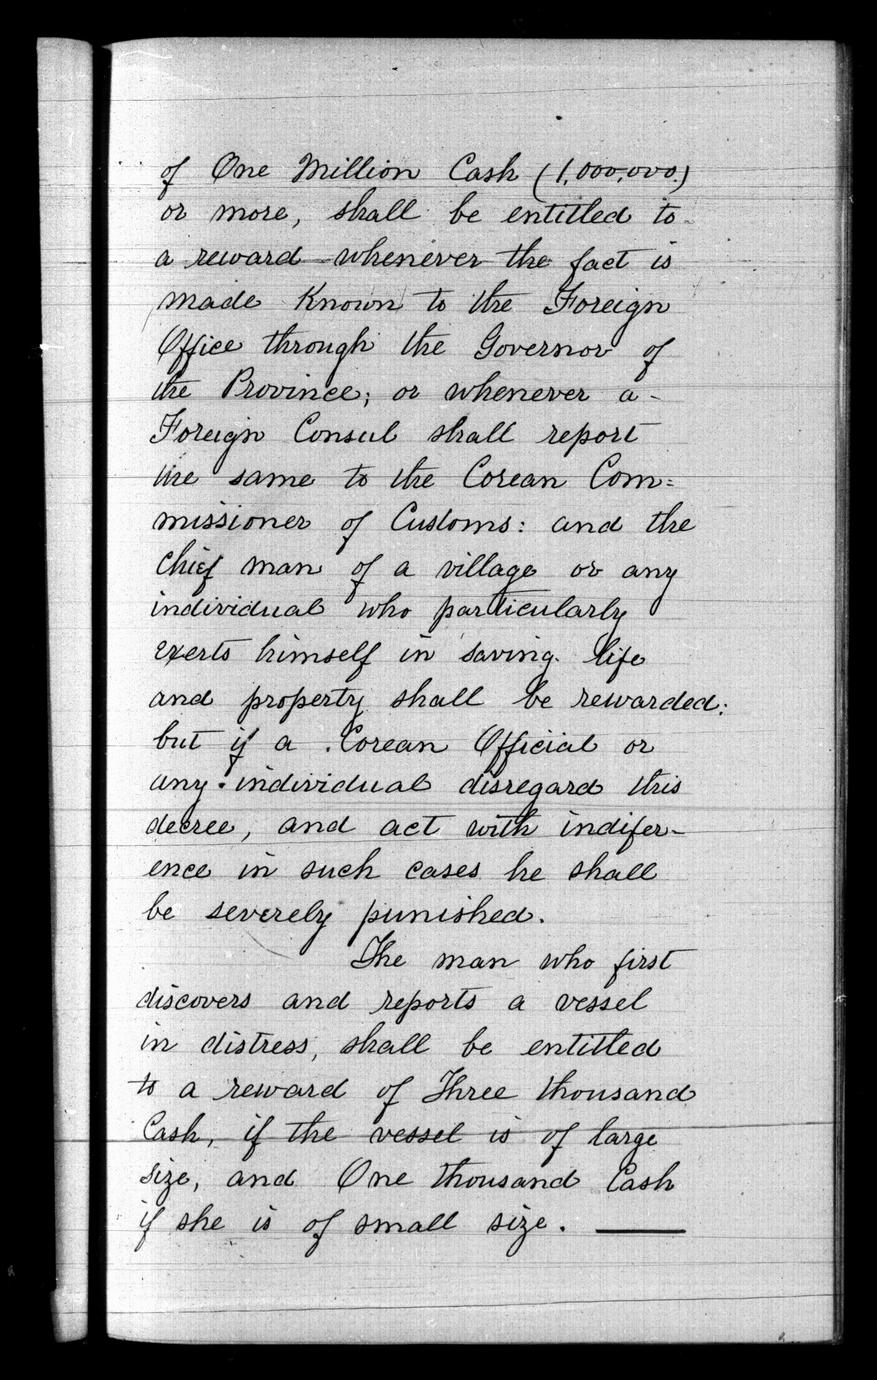 of One Million Cash (1,000,000)
or more, shall be entitled to
a reward whenever the fact is
made Known to the Foreign
Office through the Governor of
the Province; or whenever a
Foreign Consul shall report
the same to the Corean Com=
missioner of Customs: and the
chief man of a village or any
individual who particularly
exerts himself in saving life
and property shall be rewarded:
but if a Corean Official or
any individual disregard this
decree, and act with indifer-
ence in such cases he shall
be severely punished.
The man who first
discovers and reports a vessel
in distress, shall be entitled
to a reward of Three thousand
Cash, if the vessel is of large
size, and One thousand Cash
if she is of small size.